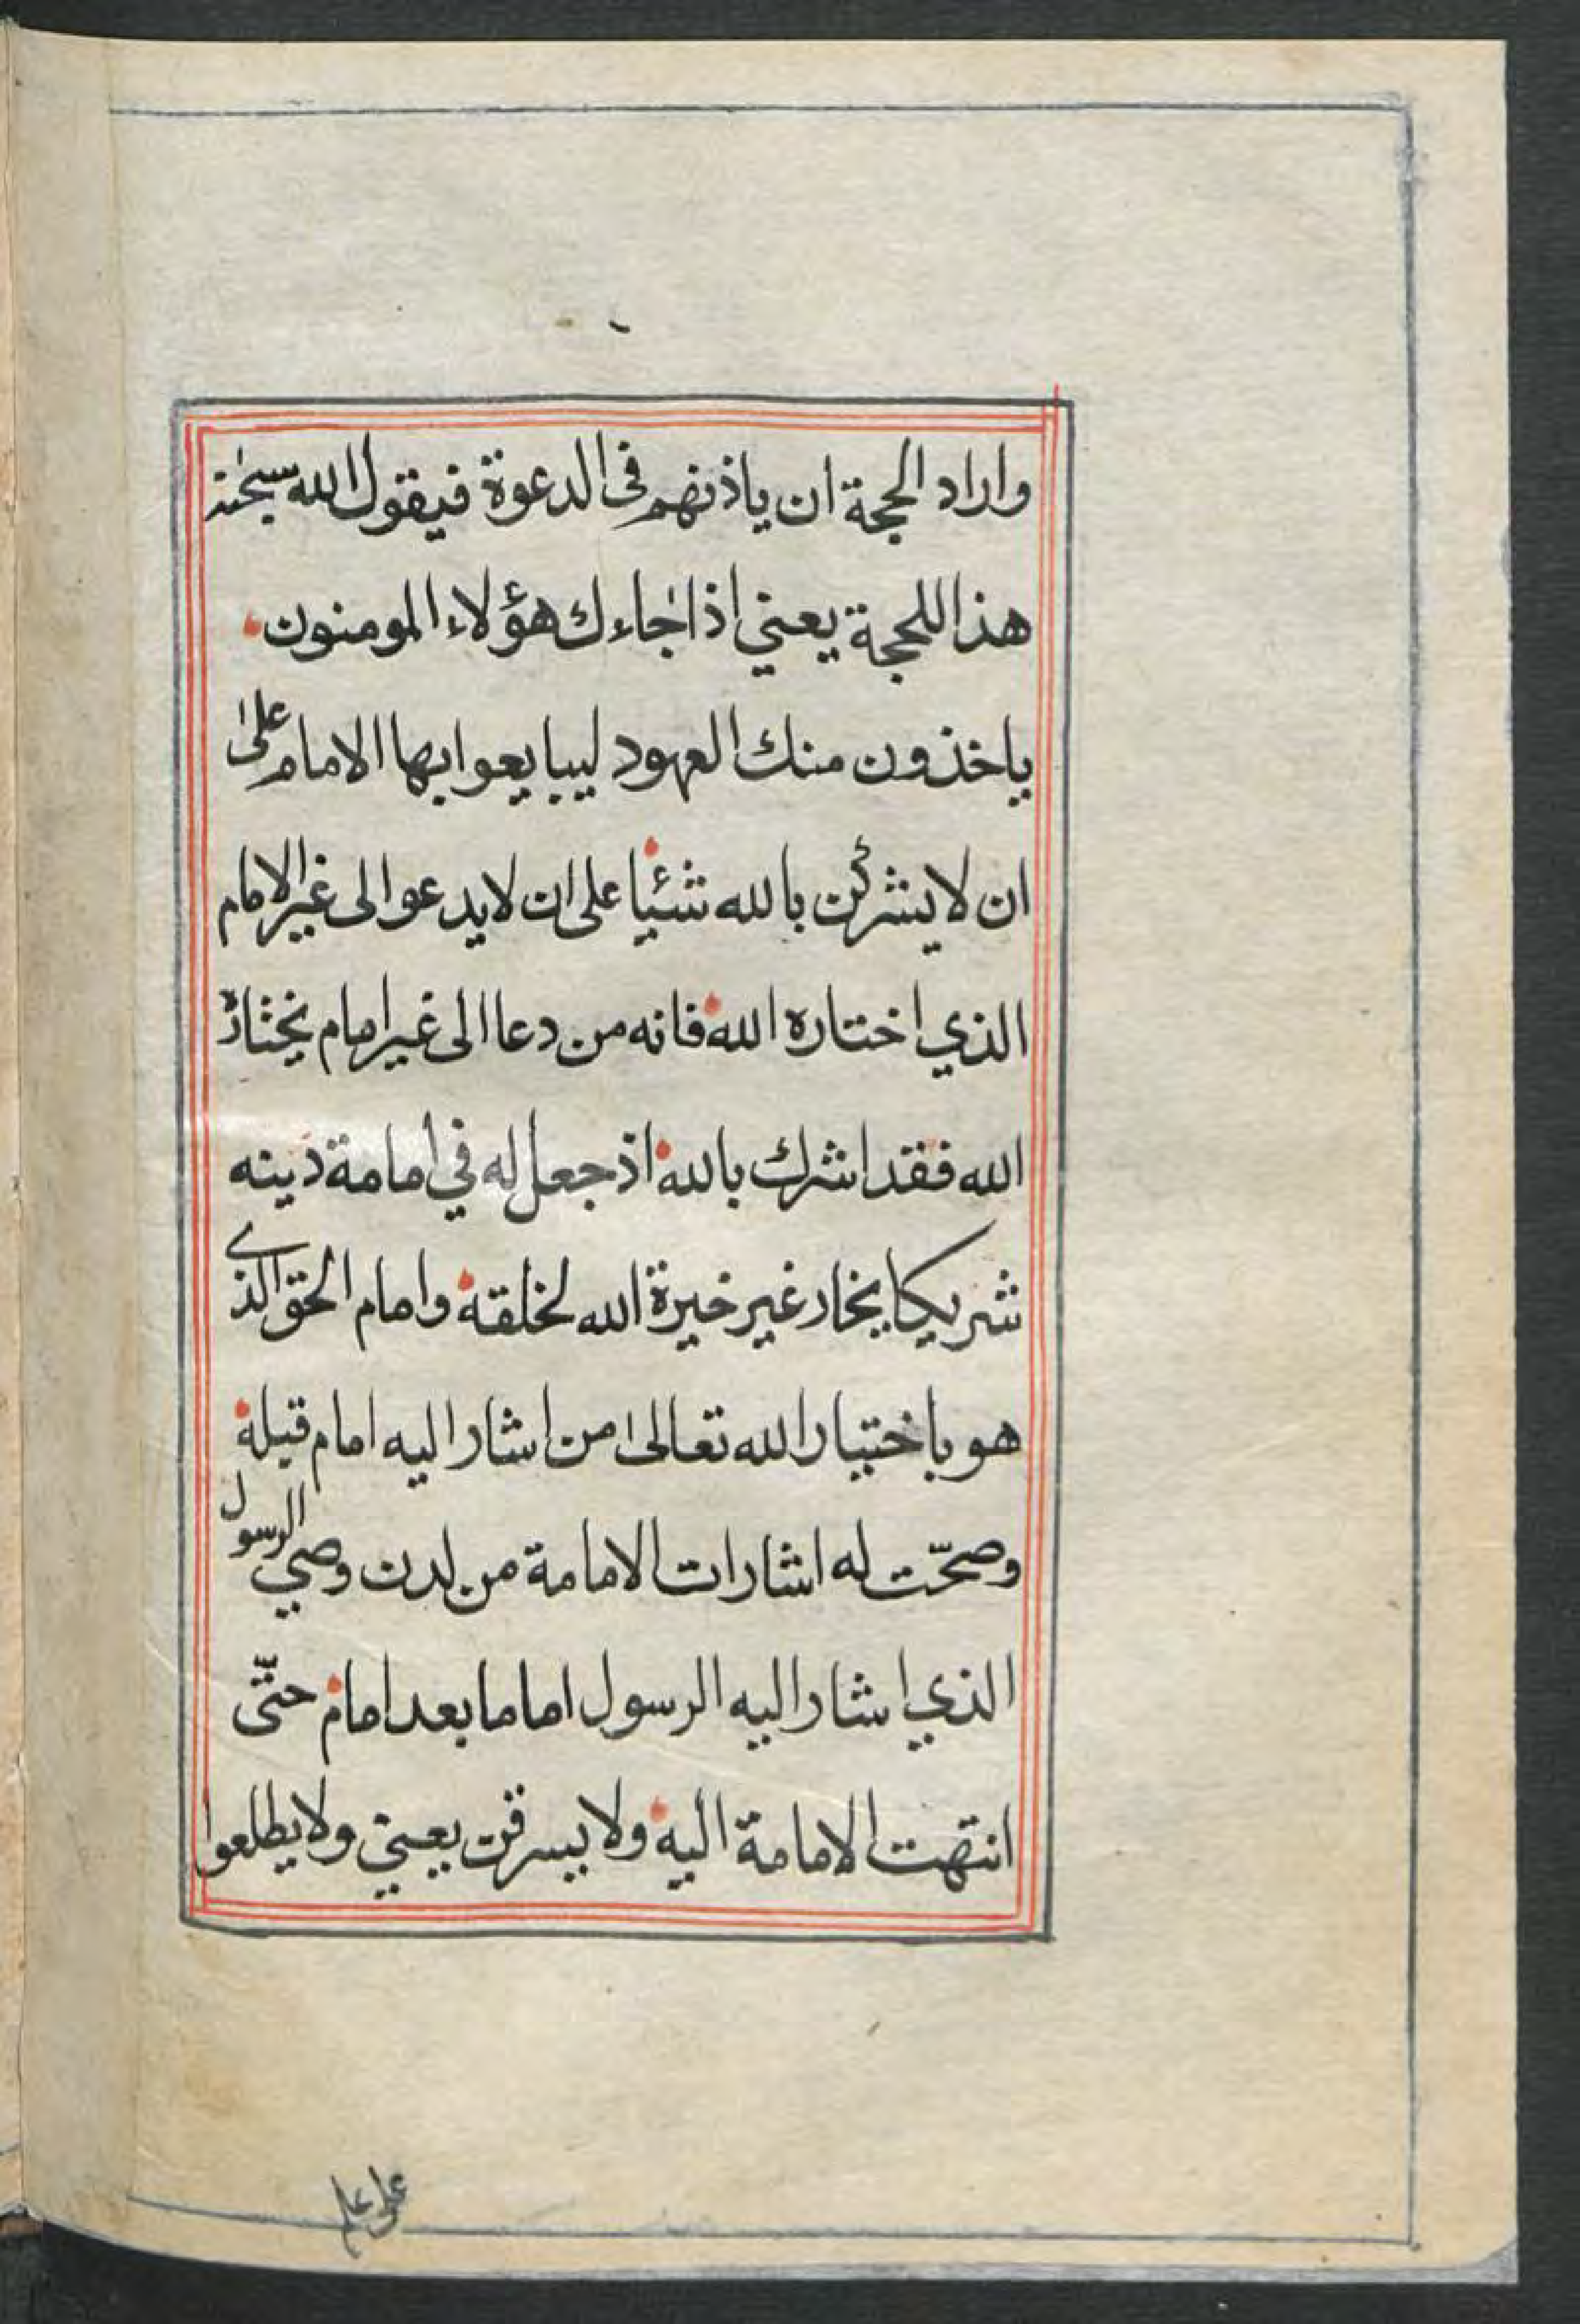 واراد الحجة ان ياذنهم فى الدعوة فيقول الله سبحٰنه
هذا اللحجة يعني اذا جٰاءك هؤلاء المومنون
ياخذون منك العهود ليبايعوا بها الامام علىٰ
ان لا يشركن بالله شئيا على ان لا يدعوا الى غير الامام
الذي اختاره الله فانه من دعا الى غير امام يختاره
الله فقد اشرك بالله اذ جعل له في امامة دينه
شريكا يخار غير خيرة الله لخلقه وامام الحق الذي
هو باختيار الله تعالىٰ من اشار اليه امام قبله
وصحّت له اشارات الامامة من لدن وصي الرسول
الذي اشار اليه الرسول اماما بعد امام حتّى
انتهت الامامة اليه ولا يسرقن يعني ولا يطلعوا
على علم